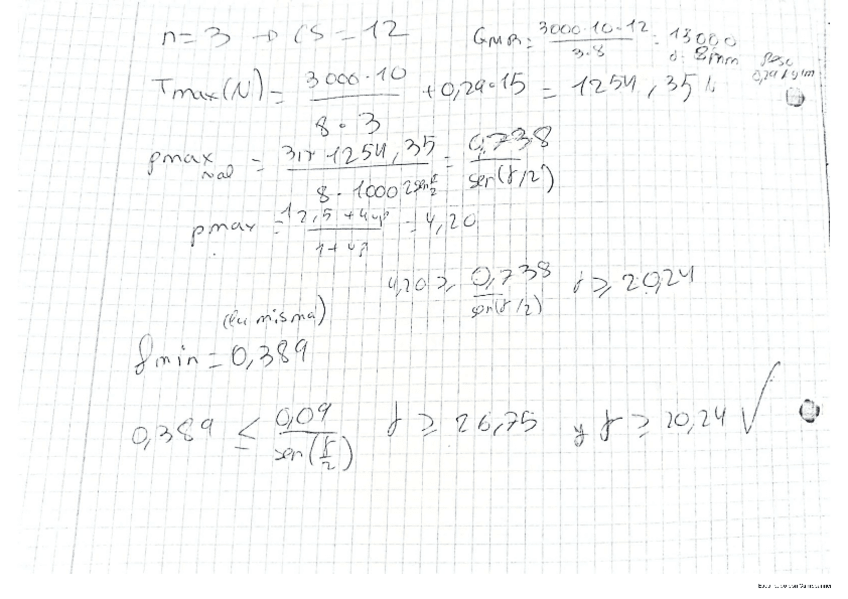 n = 3 → CS = 12
CMR: 3000·10·12 / 3·8 = 15000
d: 8mm
Peso
Tmax(N) = 3000·10 / 8·3 + 0,29·15 = 1254,35
pmax = 3n·1254,35 / 8·1000 2sen γ/2 = 0,738 / sen(γ/2)
pmax = 12,5+4vp / 1+vp = 4,20
4,20 ≥ 0,738 / sen(γ/2) γ ≥ 20,24
(la misma)
fmin = 0,389
0,389 ≤ 0,09 / sen(γ/2) γ ≥ 26,75 y γ ≥ 20,24 ✓